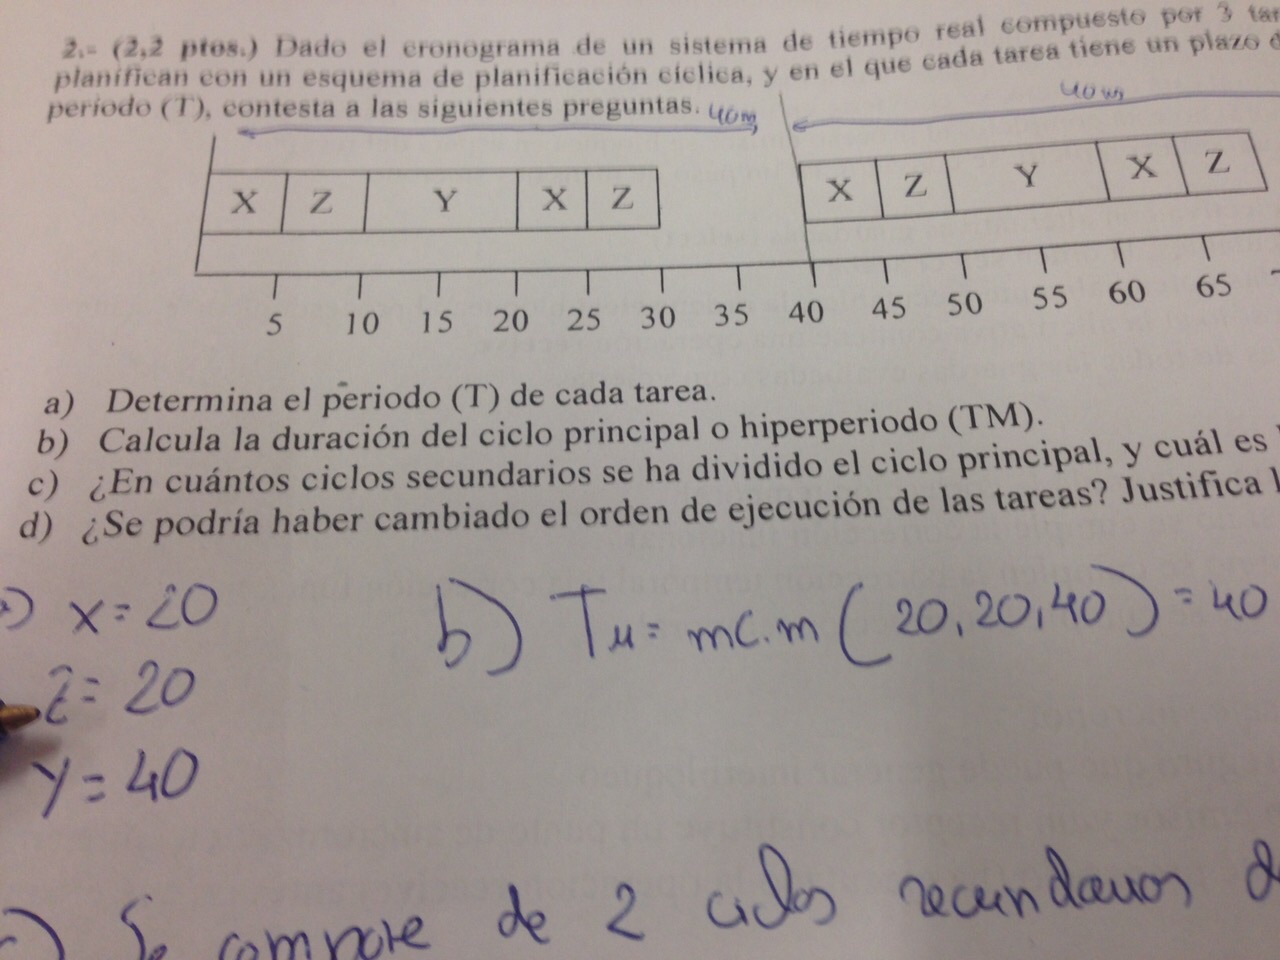 2.- (2,2 ptos.) Dado el cronograma de un sistema de tiempo real compuesto por 3
planifican con un esquema de planificación cíclica, y en el que cada tarea tiene un plazo
periodo (T), contesta a las siguientes preguntas.
40m
40m
X Z Y X Z X Z Y X Z
5 10 15 20 25 30 35 40 45 50 55 60 65
a) Determina el periodo (T) de cada tarea.
b) Calcula la duración del ciclo principal o hiperperiodo (TM).
c) ¿En cuántos ciclos secundarios se ha dividido el ciclo principal, y cuál es
d) ¿Se podría haber cambiado el orden de ejecución de las tareas? Justifica
a) X = 20
Z = 20
Y = 40
b) TM = mc.m (20, 20, 40) = 40
c) Se compone de 2 ciclos secundarios